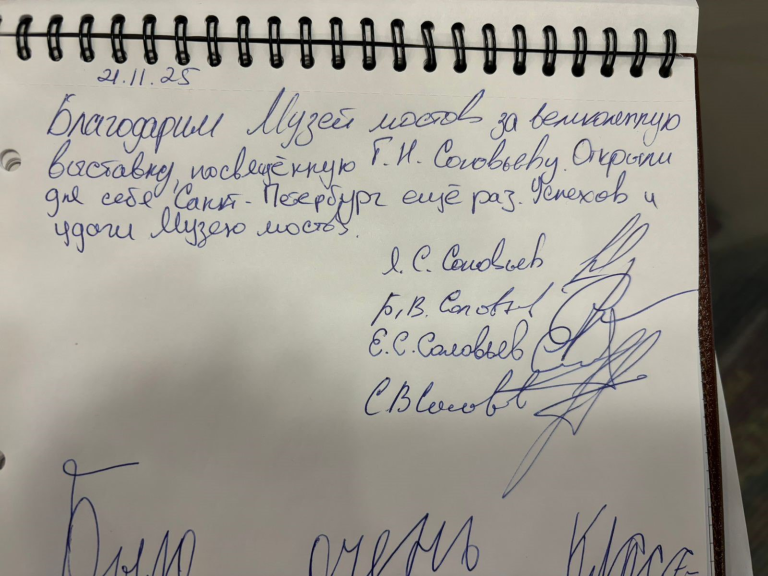 21.11.25
Благодарим Музей мостов за великолепную
выставку, посвящённую Г. Н. Соловьеву. Открыли
для себя Санкт-Петербург ещё раз. Успехов и
удачи Музею мостов.
Я. С. Соловьев
Б. В. Соловьев
Е. С. Соловьев
С В Соловьев
Было очень класс-